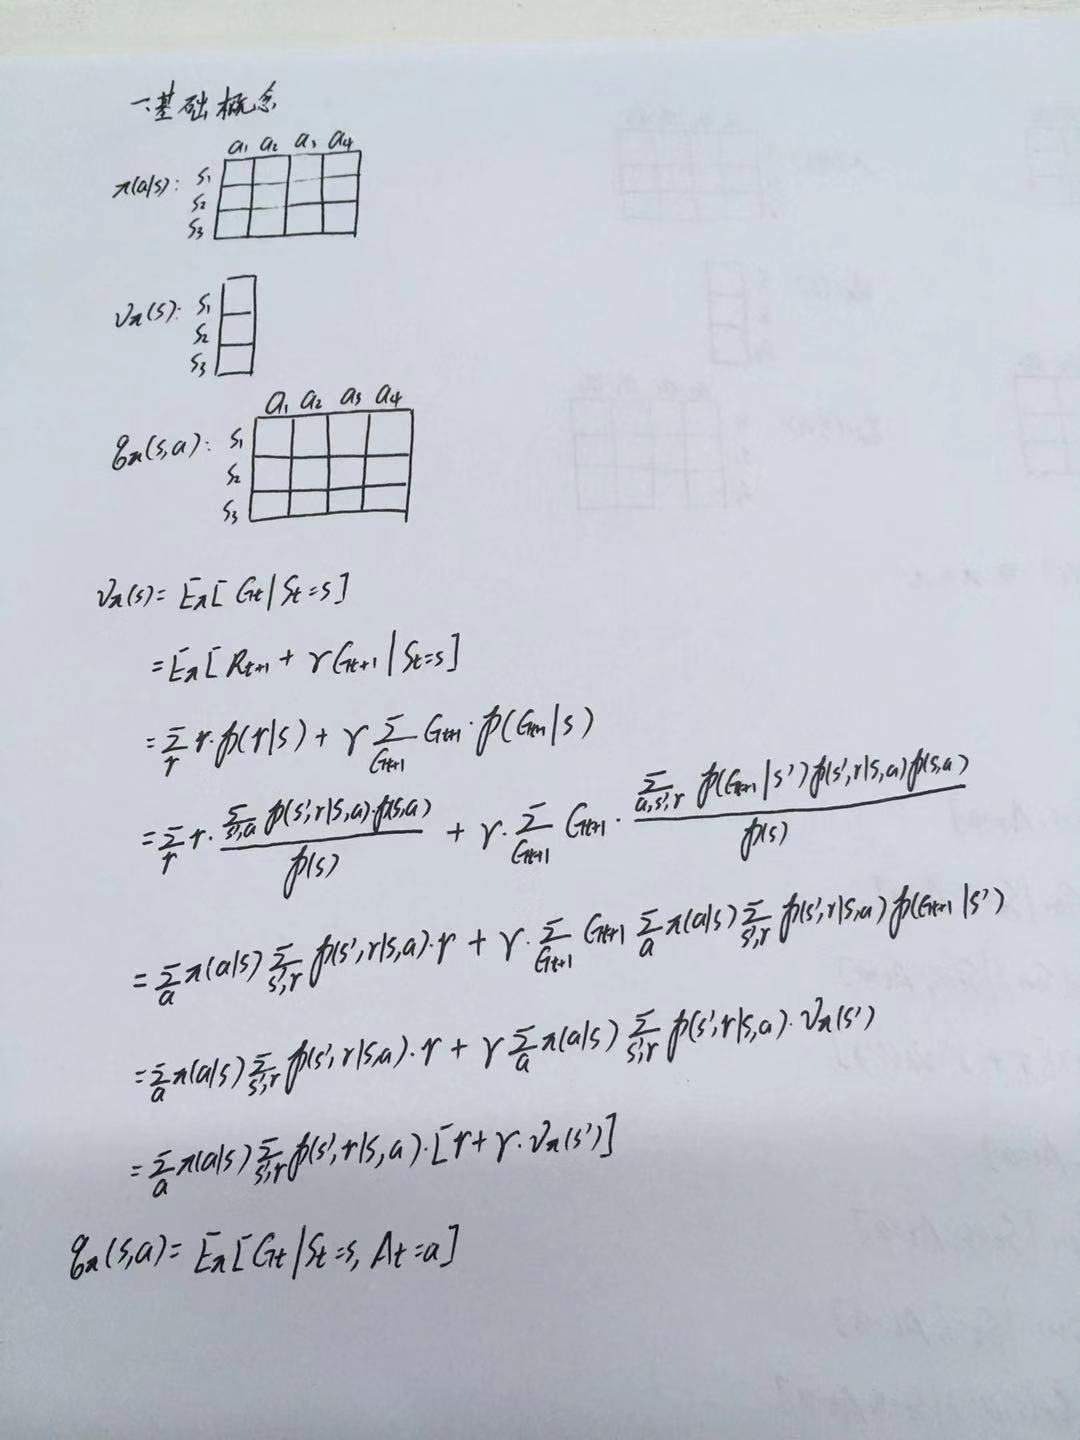 一、基础概念
a₁ a₂ a₃ a₄
π(a|s): s₁
s₂
s₃
vπ(s): s₁
s₂
s₃
a₁ a₂ a₃ a₄
qπ(s,a): s₁
s₂
s₃
vπ(s) = Eπ[Gt|St=s]
= Eπ[Rt+1 + γGt+1|St=s]
= Σ_r r·p(r|s) + γ Σ_Gt+1 Gt+1·p(Gt+1|s)
= Σ_r r· Σ_s',a p(s',r|s,a)·p(s,a) / p(s) + γ· Σ_Gt+1 Gt+1· Σ_a,s',r p(Gt+1|s')p(s',r|s,a)p(s,a) / p(s)
= Σ_a π(a|s) Σ_s',r p(s',r|s,a)·r + γ· Σ_Gt+1 Gt+1 Σ_a π(a|s) Σ_s',r p(s',r|s,a) p(Gt+1|s')
= Σ_a π(a|s) Σ_s',r p(s',r|s,a)·r + γ Σ_a π(a|s) Σ_s',r p(s',r|s,a)·vπ(s')
= Σ_a π(a|s) Σ_s',r p(s',r|s,a)·[r+γ·vπ(s')]
qπ(s,a) = Eπ[Gt|St=s, At=a]